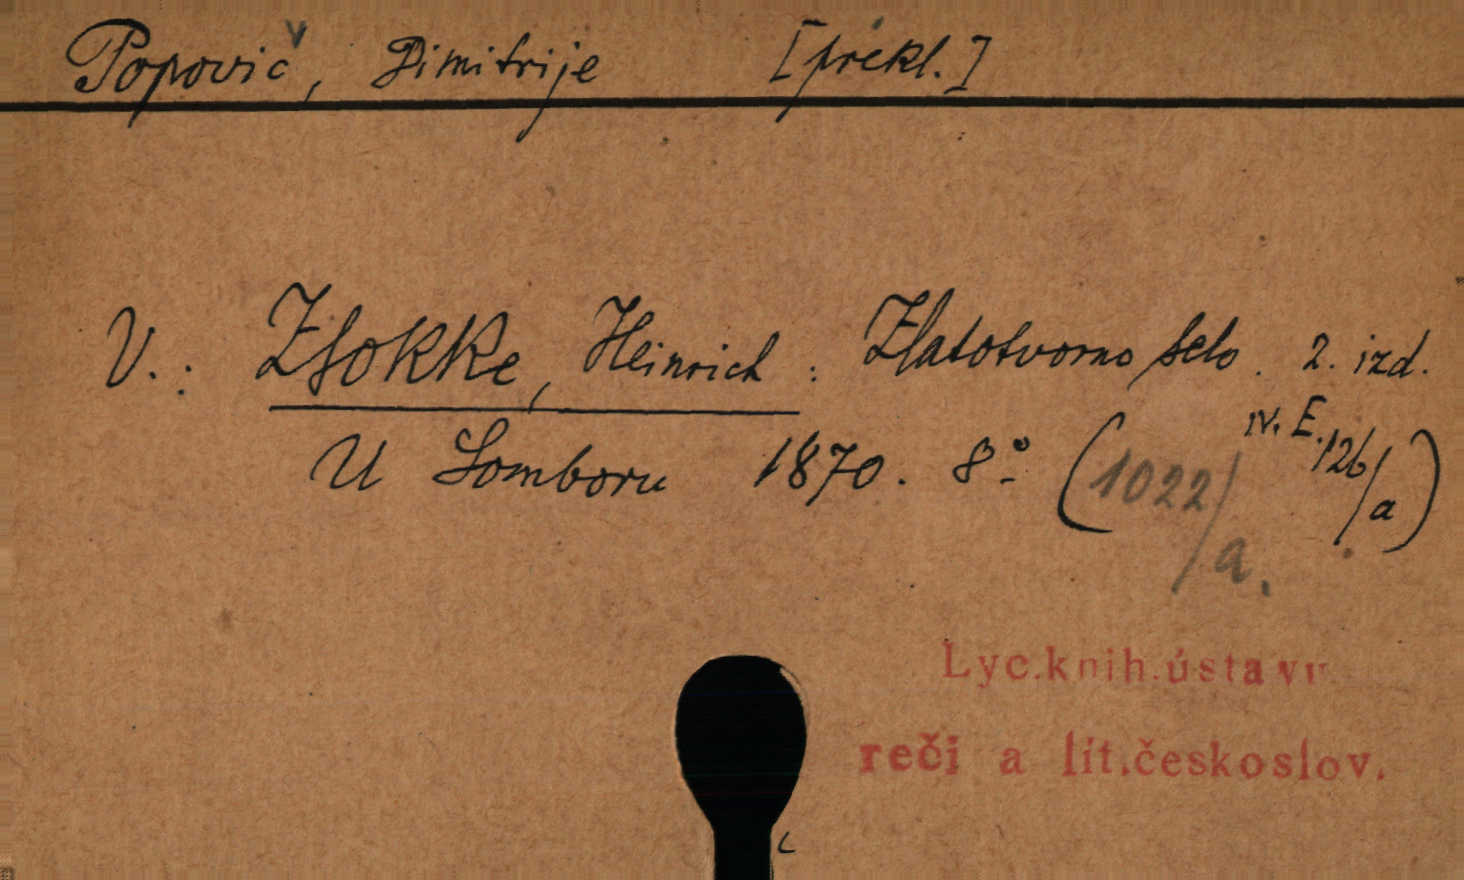 Popovič, Dimitrije [prekl.]
V.: Zsokke, Heinrich: Zlatotvorno selo. 2. izd.
U Somboru 1870. 8° (1022/a. IV. E. 126/a)
Lyc.knih.ústavu
reči a lit.českoslov.